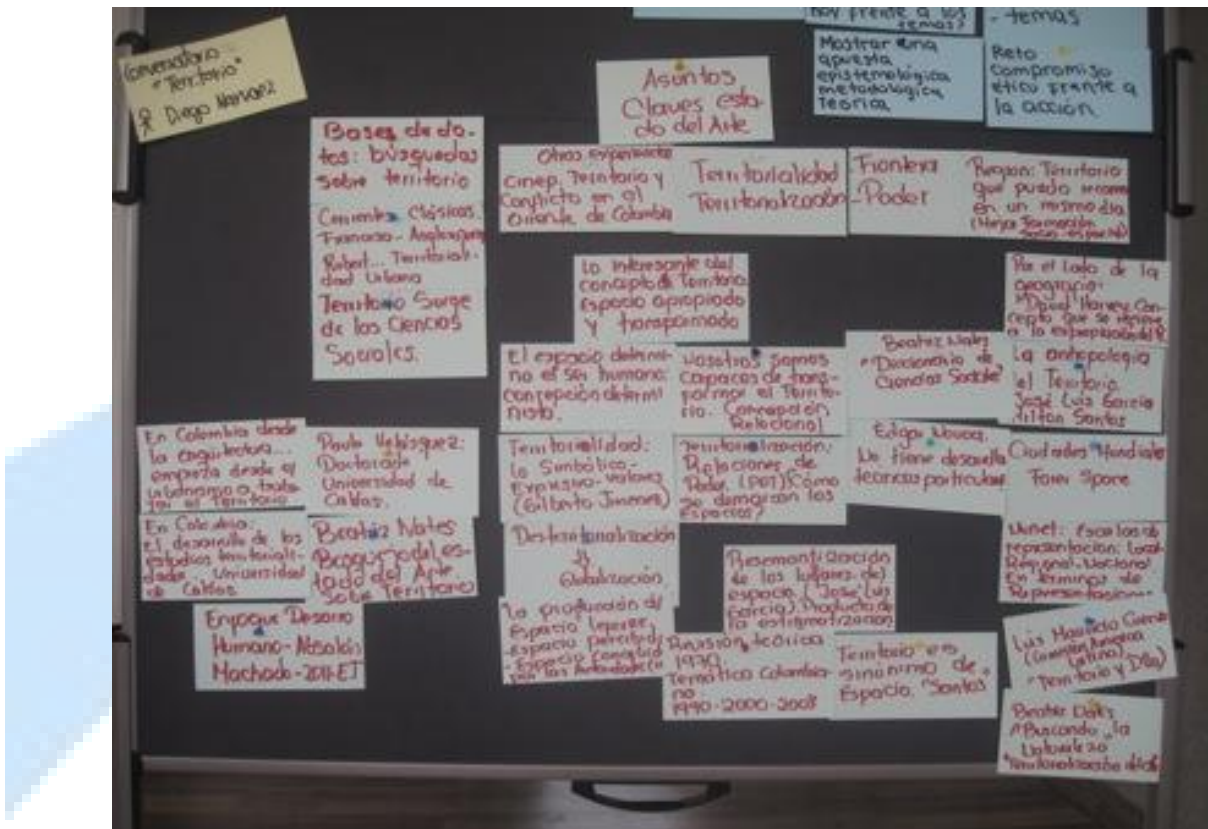 Conversatorio
"Territorio"
Diego Narvaez
hoy frente a los
temas?
- temas
Mostrar una
apuesta
epistemológica
metodológica
Teorica
Reto
compromiso
etico frente a
la acción
Asuntos
Claves esta-
do del Arte
Bases de da-
tos: busquedas
sobre territorio
Clásicos.
Robert... Territoriali-
dad Urbana
Territorio Surge
de las Ciencias
Sociales.
Otras
Cinep. Territorio y
Conflicto en el
Oriente de Colombia
Territorialidad
Territorialización
Frontera
-Poder
Region: Territorio
que puedo
en un mismo dia
Lo interesante del
concepto de Territorio
Espacio apropiado
y transformado
Por el lado de la
geografia:
"David Harvey Con-
cepto que se
a la
El espacio determi-
na el ser humano:
concepción determi
nista.
Nosotros somos
Capaces de trans-
formar el Territo-
rio. Concepción
Relacional
Beatriz Nates
"Diccionario de
Ciencias Sociales"
La antropologia
el Territorio
José Luis Garcia
Milton Santos
En Colombia desde
la arquitectura...
empieza desde el
urbanismo a
el Territorio
Paula Velásquez:
Doctorado
Universidad de
Caldas.
Territorialidad:
lo Simbólico-
Expresivo-valores
(Gilberto Jimenez)
Territorialización:
Relaciones de
Poder. (POT) Cómo
se demarcan los
Espacios?
Edgar Novoa.
No tiene desarrollo
teoricos particular
Ciudades Mundiales
En Colombia:
el desarrollo de los
estudios territoriali-
dades. Universidad
de Caldas
Beatriz Nates
Bosquejo del es-
tado del Arte
Sobre Territorio
Desterritorialización
Globalización
Resemantización
de los lugares. del
espacio. (José Luis
Garcia). Producto de
la estigmatización
Escalas de
representación: Local-
Regional-Nacional
En terminos de
Representaciones
Enfoque Desarro
Humano-Absalón
Machado-2011-ET
La producción del
Espacio
- Espacio percibido
- Espacio
Revisión teórica
1970
Temática Colombia-
na
1990-2000-2008
Territorio es
sinónimo de
Espacio. "Santos"
Luis Mauricio
Latina)
"Territorio y
Beatriz
"Buscando la
Naturaleza